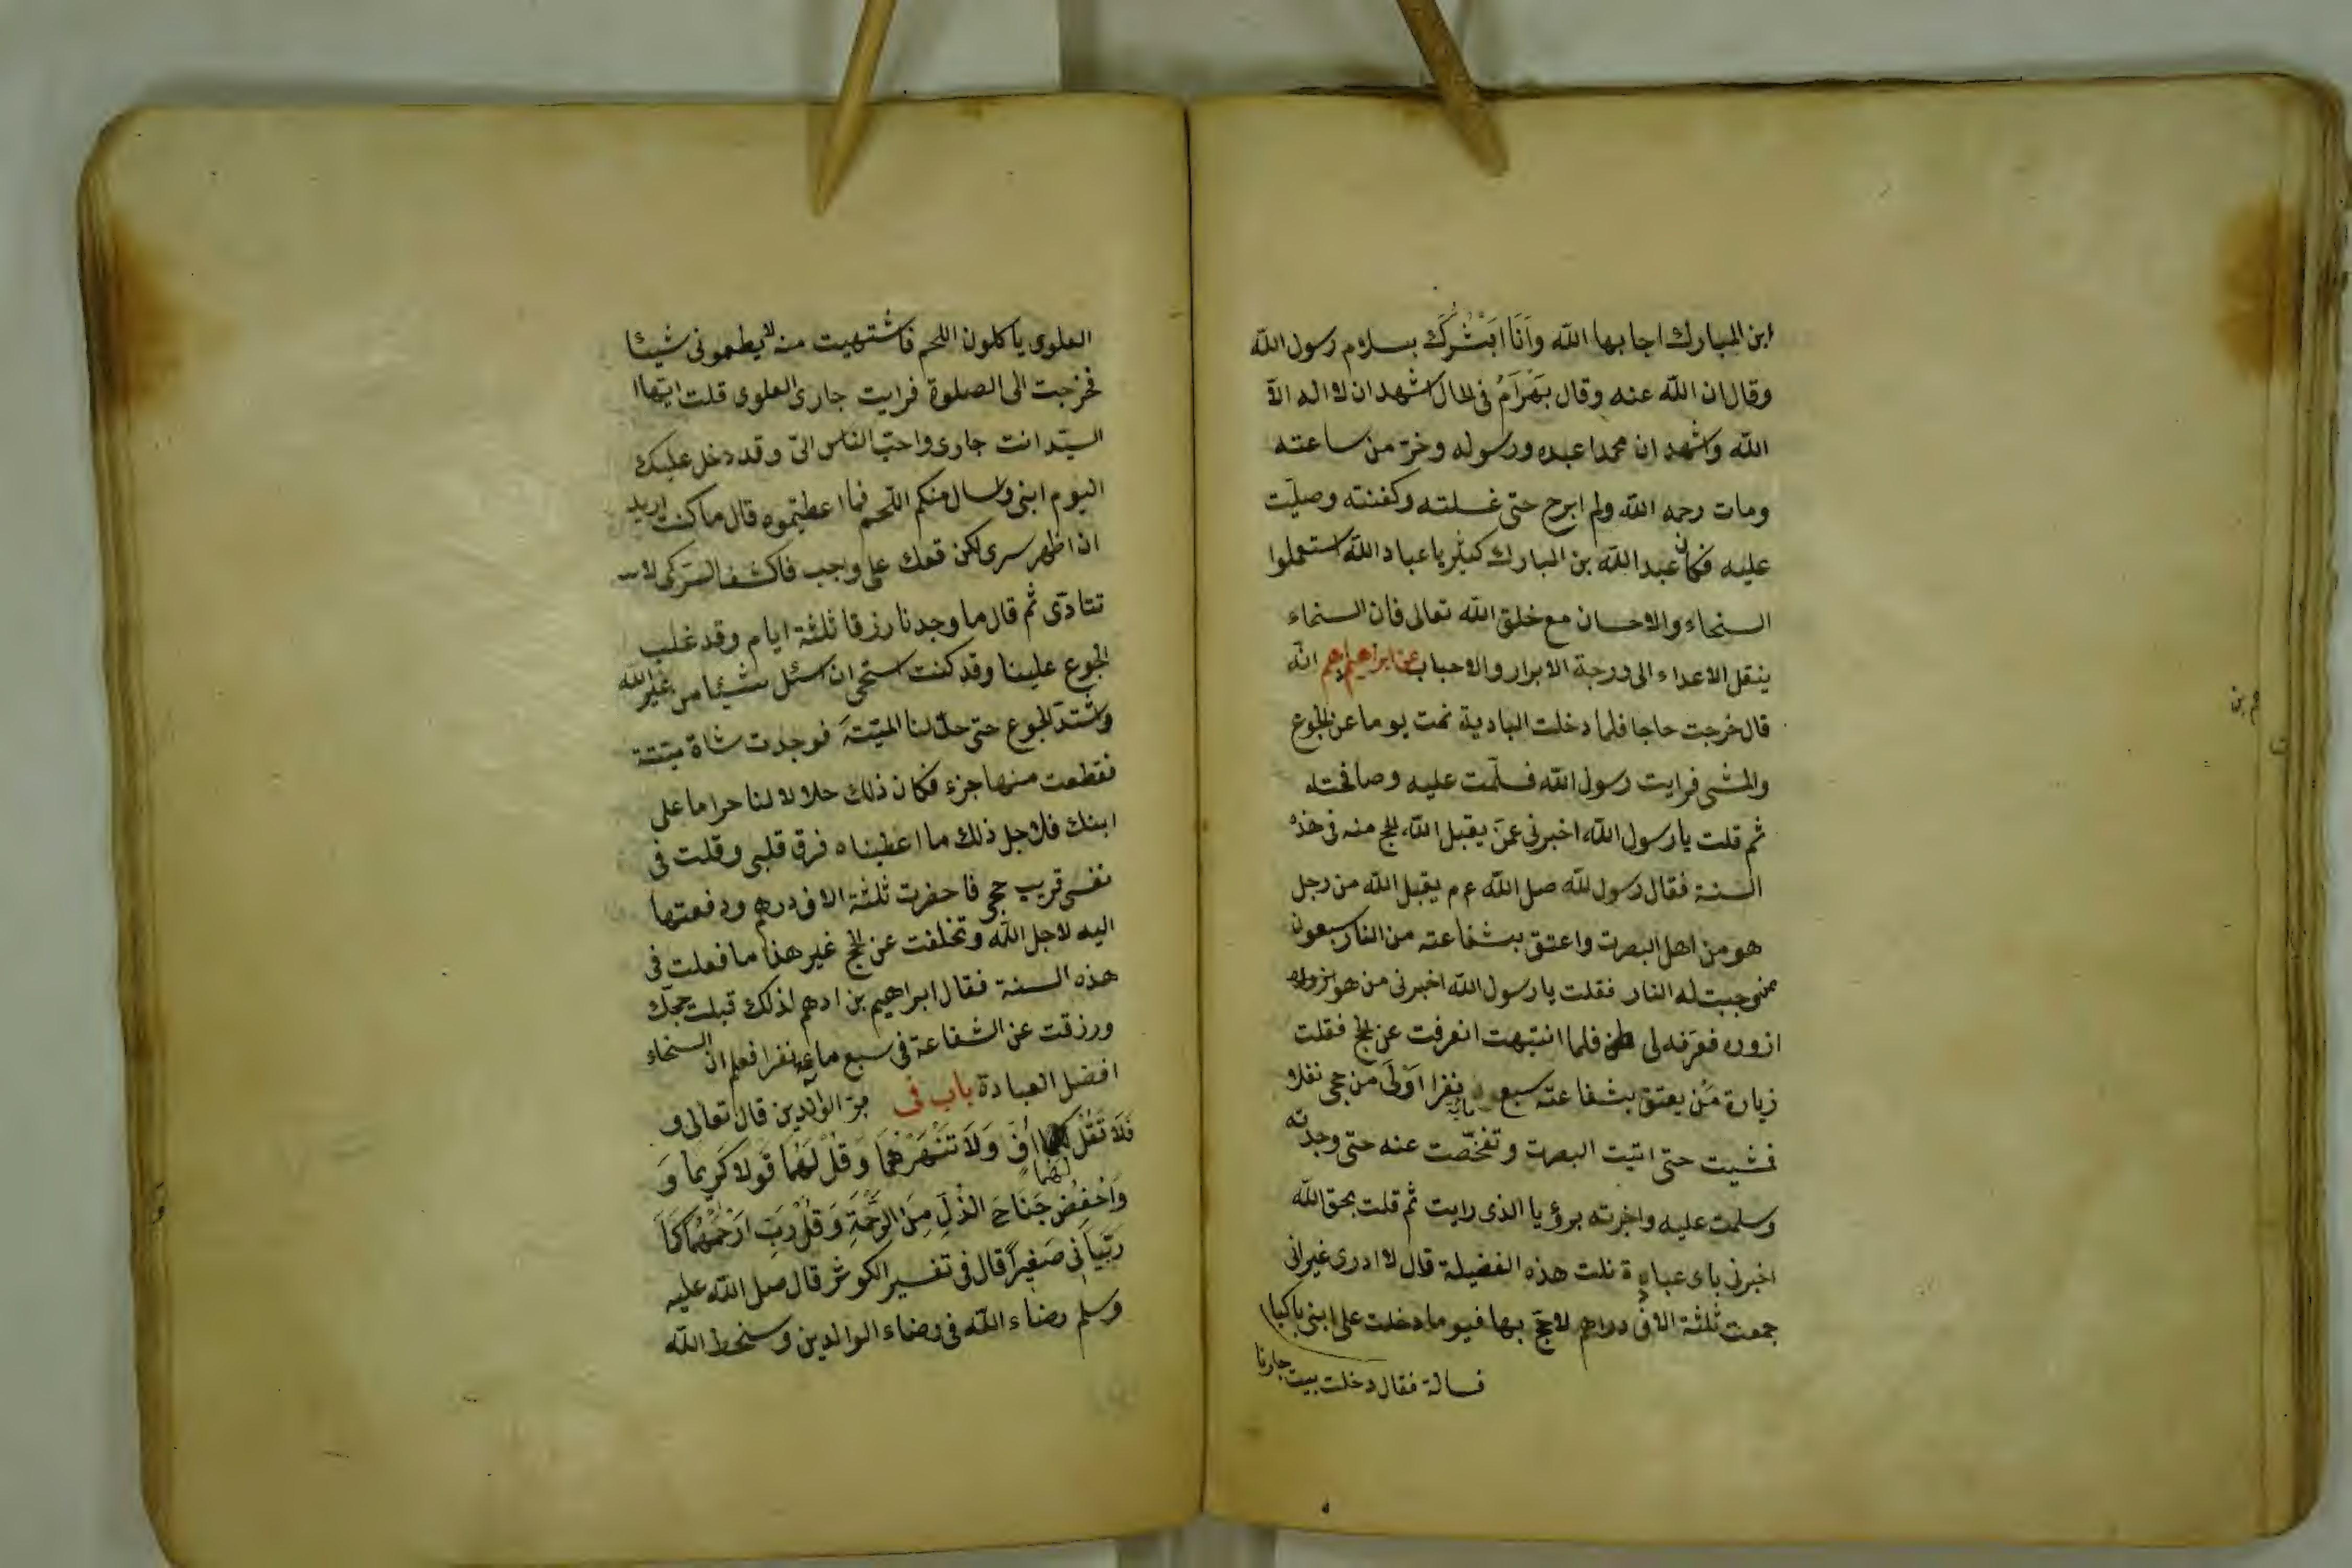 ابن المبارك اجابها الله وَاَنَا اُبَشِّرُكَ بسلام رسول الله
وقال ان الله عنه وقال بَهْرَامُ فى الحال اشهد ان لا اله الّا
الله واشهد ان محمدا عبده ورسوله وخرّ من ساعته
ومات رحمه الله ولم ابرح حتى غسلته وكفنته وصليت
عليه فكان عبد الله بن المبارك كثير يا عباد الله استعملوا
السخاء والاحسان مع خلق الله تعالى فان السخاء
ينقل الاعداء الى درجة الابرار والاحباب عن ابراهيم انه
قال خرجت حاجا فلما دخلت البادية نمت يوما عن الجوع
والمشى فرايت رسول الله فسلّمت عليه وصافحته
ثم قلت يا رسول الله اخبرنى عمّن يقبل الله الحج منه فى هذه
السنة فقال رسول الله صلى الله ع م يقبل الله من رجل
هو من اهل البصرت واعتق بشفاعته من النار سبعون
ممن وجبت له النار فقلت يا رسول الله اخبرنى من هو
ازوره فعرّفه لى فلما انتبهت انصرفت عن الحج فقلت
زيارة مَن يعتق بشفاعته سبع ماية نفرا اَوْلَى من حجى نفلا
فمشيت حتى اتيت البصرت وتفحّصت عنه حتى وجدته
وسلمت عليه واخبرته برؤيا الذى رايت ثم قلت بحق الله
اخبرنى باى عبادة نلت هذه الفضيلة قال لا ادرى غير انى
جمعت ثلثة الاف دراهم لاحجّ بها فيوما دخلت على ابنى باكيا
فسالته فقال دخلت بيت جارنا
العلوى ياكلون اللحم فاشتهيت منه لا يطعمونى شيئا
فخرجت الى الصلوة فرايت جارى العلوى قلت ايها
السيّد انت جارى واحبّ الناس الىّ وقد دخل عليك
اليوم ابنى وسال منكم اللحم فما اعطيتموه قال ما كنت اريد
ان اظهر سرى لكن حقك على واجب فاكشف السرّ كى لا
تتاذى ثم قال ما وجدنا رزقا ثلثة ايام وقد غلب
الجوع علينا وقد كنت استحى ان اسئل شيئا من غير الله
واشتدّ الجوع حتى حلّ لنا الميتةَ فوجدت شاة ميتة
فقطعت منها جزء فكان ذلك حلالا لنا حراما على
ابنك فلاجل ذلك ما اعطيناه فرق قلبى وقلت فى
نفسى قريب حجى فاحضرت ثلثة الاف درهم ودفعتها
اليه لاجل الله وتخلفت عن الحج غير هذا ما فعلت فى
هذه السنة فقال ابراهيم بن ادهم لذلك قبلت حجك
ورزقت عن الشفاعة فى سبع ماية نفرا فعلم ان السخاء
افضل العبادة باب فى برّ الوالدين قال تعالى و
فَلَا تَقُلْ لَهُمَا اُفٍّ وَلَا تَنْهَرْهُمَا وَقُلْ لَهُمَا قَوْلًا كَرِيمًا وَ
وَاخْفِضْ جَنَاحَ الذُّلِّ مِنَ الرَّحْمَةِ وَقُلْ رَبِّ ارْحَمْهُمَا كَمَا
رَبَّيَانِى صَغِيرًا قال فى تفسير الكوثر قال صلى الله عليه
وسلم رضاء الله فى رضاء الوالدين وسخط الله